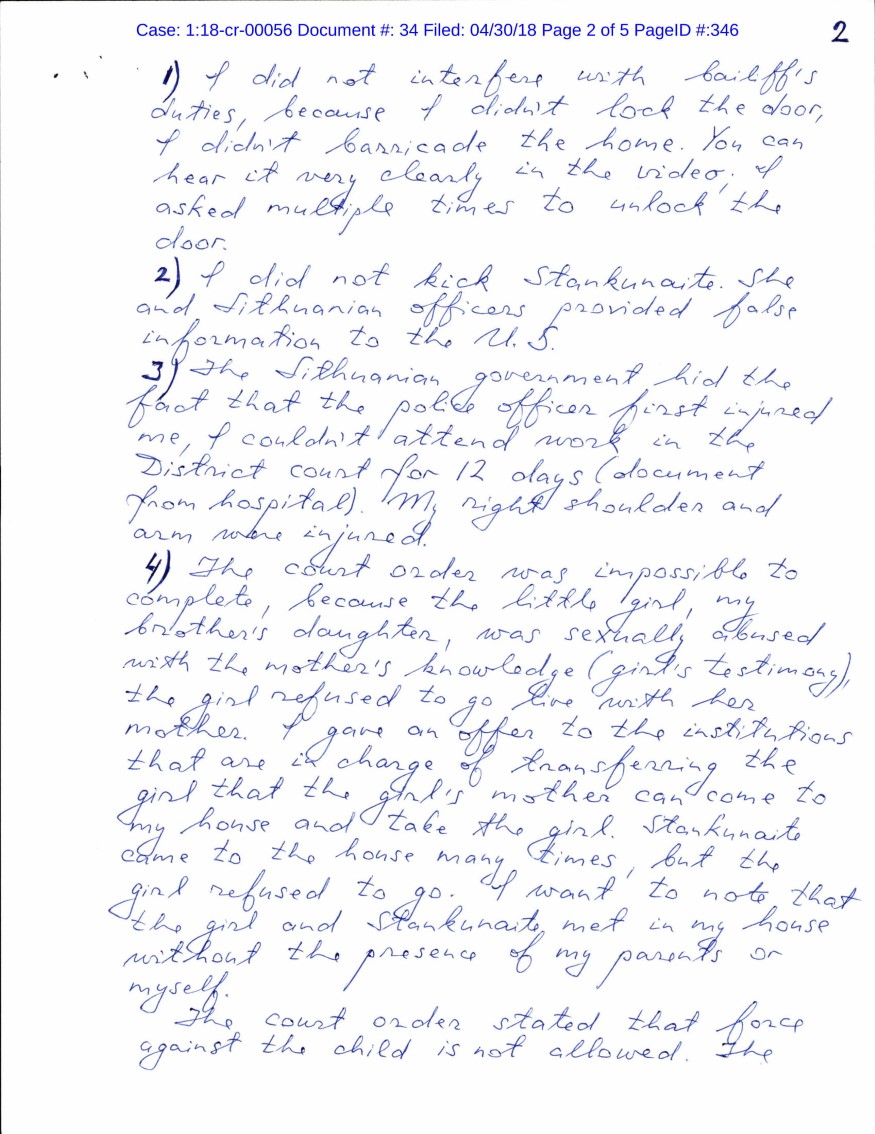 Case: 1:18-cr-00056 Document #: 34 Filed: 04/30/18 Page 2 of 5 PageID #:346
2
1) I did not interfere with bailiff's
duties, because I didn't lock the door,
I didn't barricade the home. You can
hear it very clearly in the video. I
asked multiple times to unlock the
door.
2) I did not kick Stankunaite. She
and Lithuanian officers provided false
information to the U.S.
3) The Lithuanian government hid the
fact that the police officer first injured
me, I couldn't attend work in the
District court for 12 days (document
from hospital). My right shoulder and
arm were injured.
4) The court order was impossible to
complete, because the little girl, my
brother's daughter, was sexually abused
with the mother's knowledge (girl's testimony),
the girl refused to go live with her
mother. I gave an offer to the institutions
that are in charge of transferring the
girl that the girl's mother can come to
my house and take the girl. Stankunaite
came to the house many times, but the
girl refused to go. I want to note that
the girl and Stankunaite met in my house
without the presence of my parents or
myself.
The court order stated that force
against the child is not allowed. The